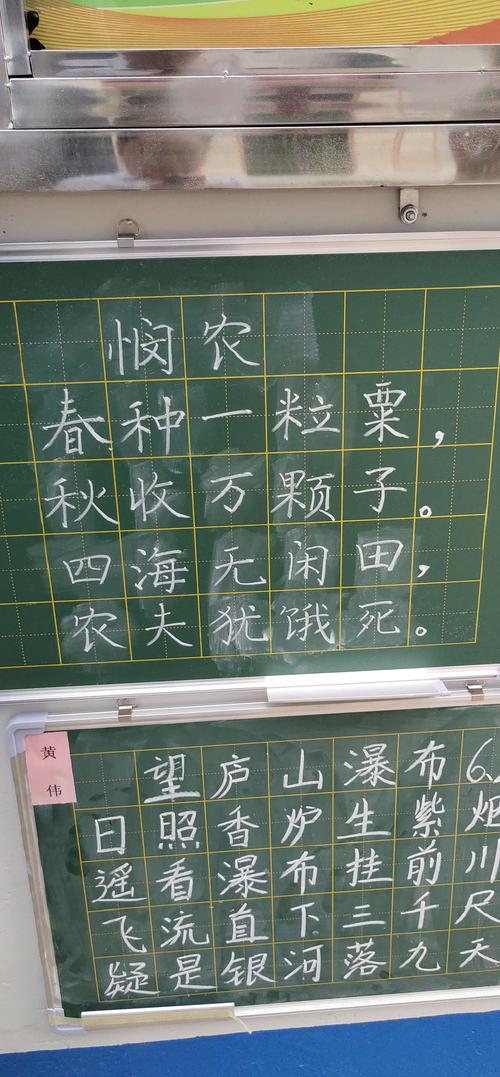 悯农
春种一粒粟，
秋收万颗子。
四海无闲田，
农夫犹饿死。
黄伟
望庐山瀑布 6.
日照香炉生紫烟
遥看瀑布挂前川
飞流直下三千尺
疑是银河落九天